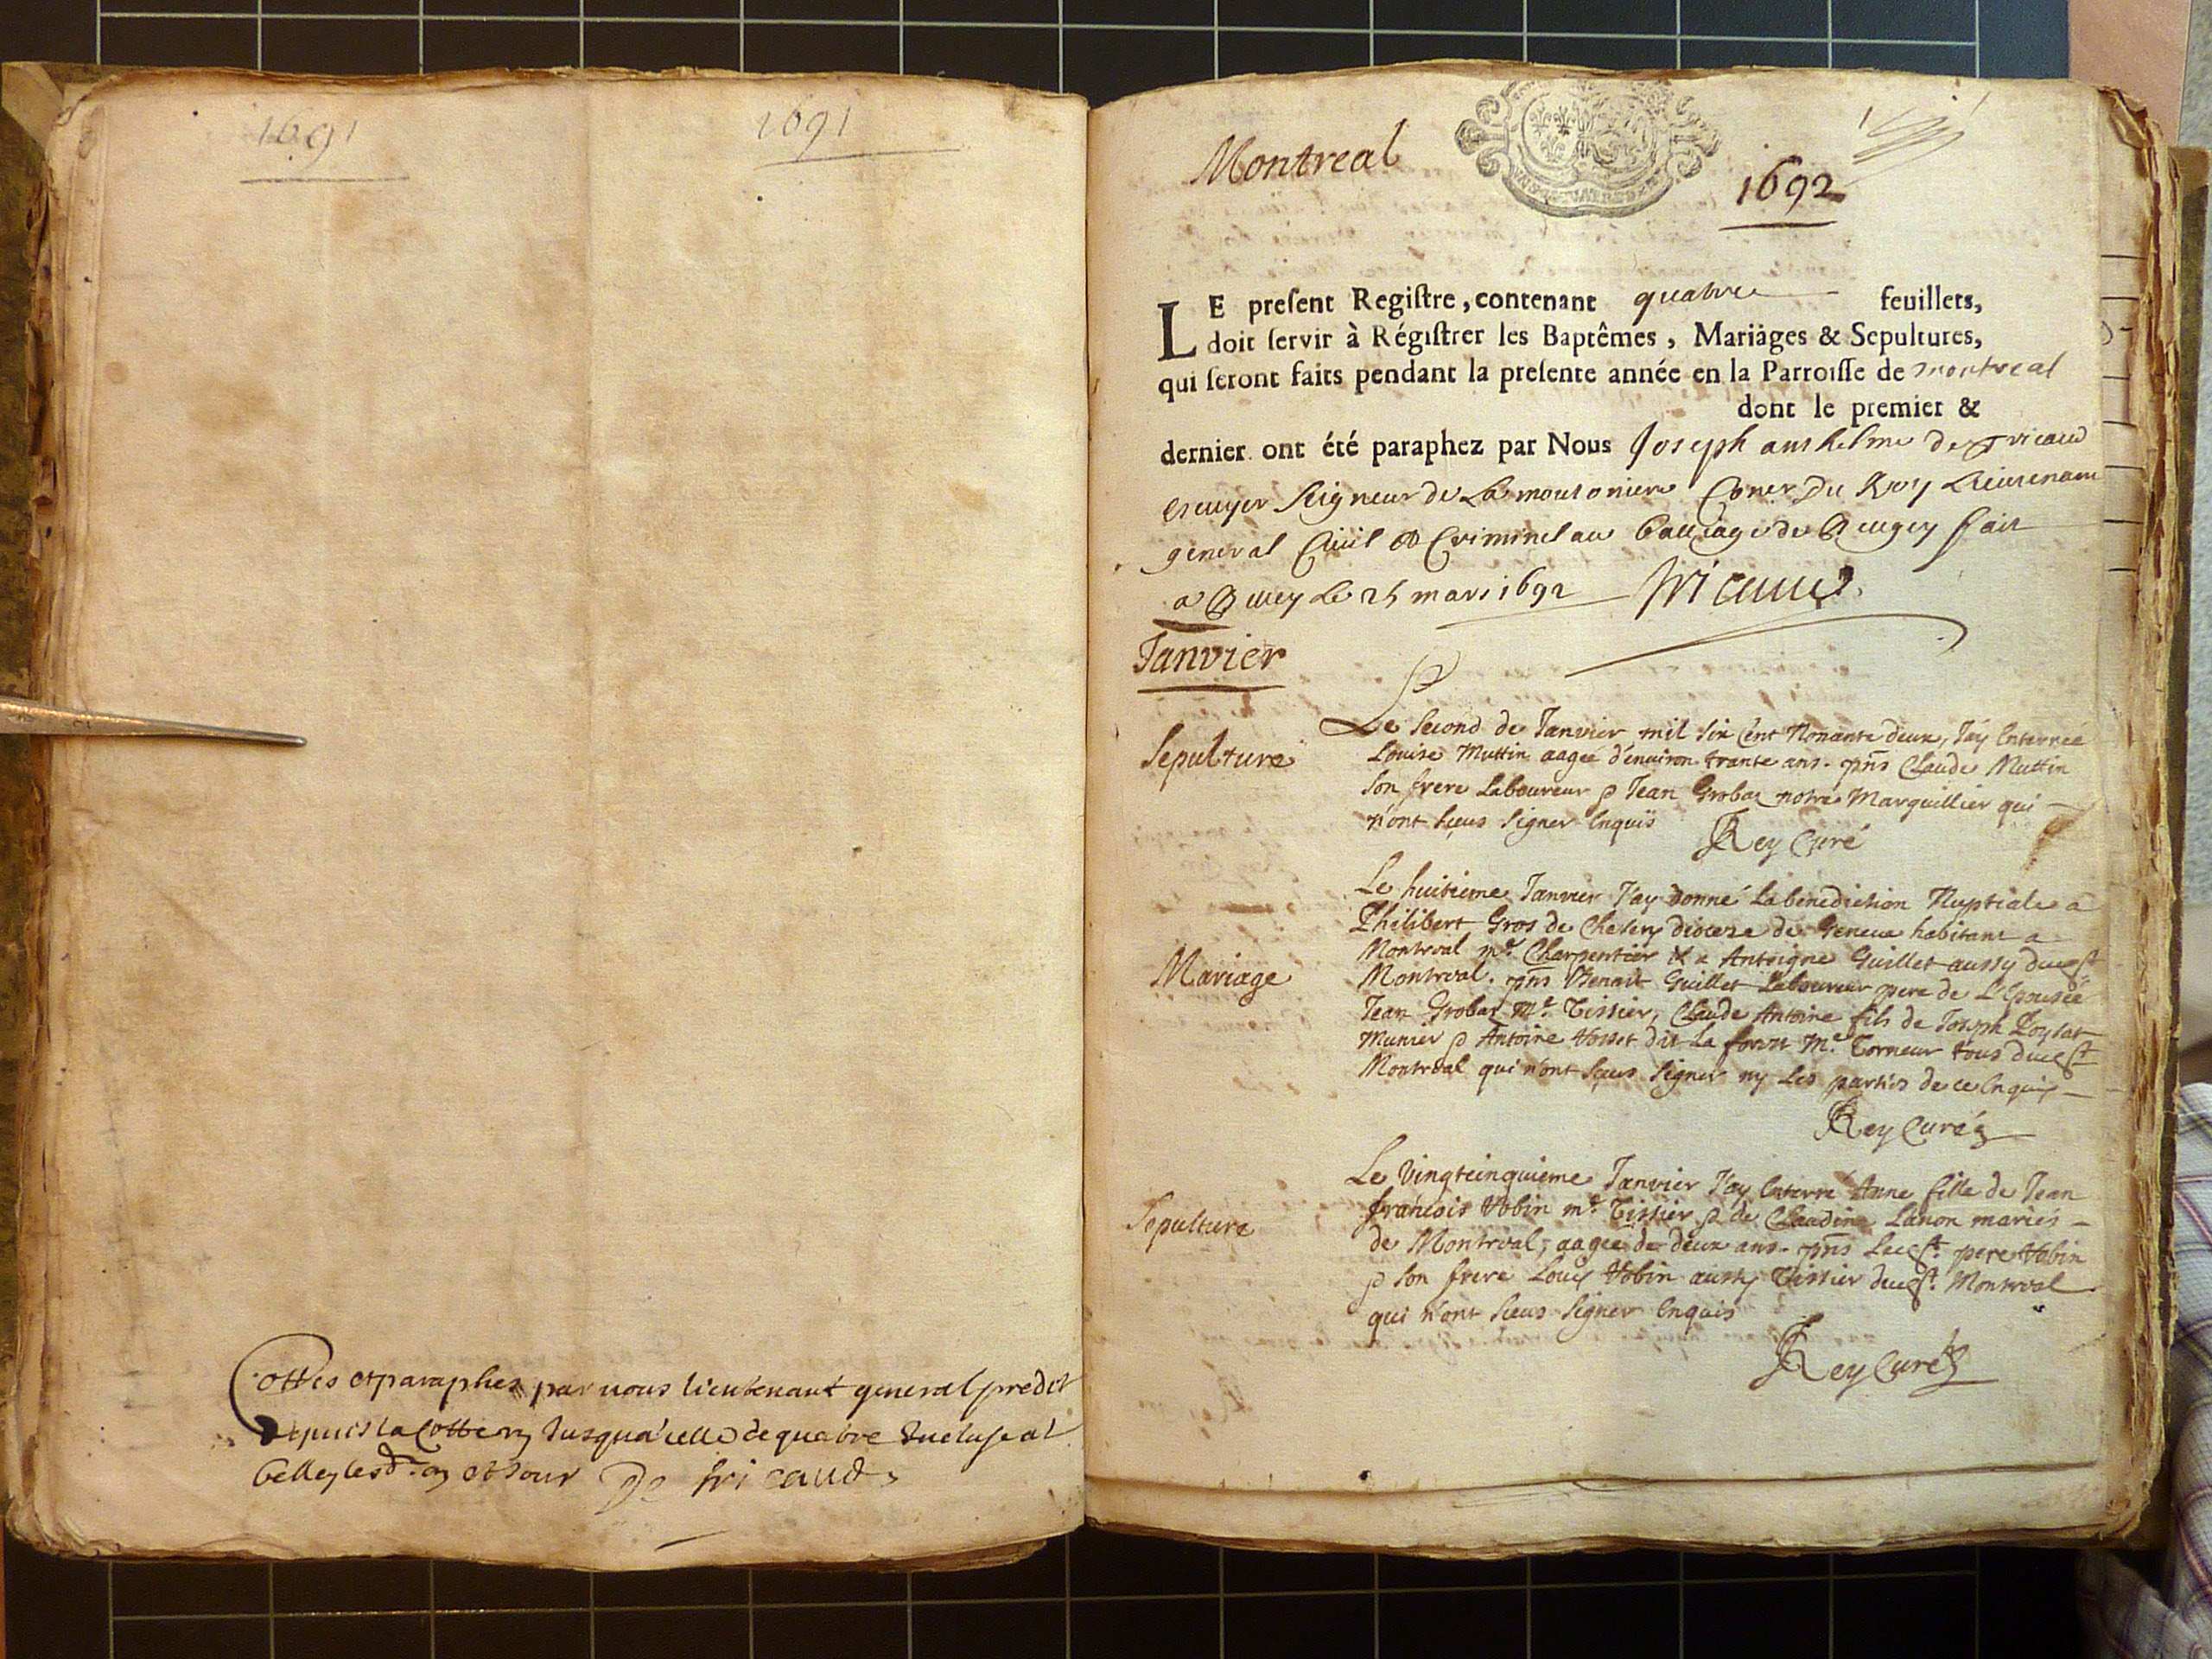 1691
1691
Cottés et paraphez par nous lieutenant general predit
depuis la Cotte Jusqua celle de quatre Incluse at
belley les an et Jour De Tricaud
Montreal
1692
LE preſent Regiſtre, contenant quatre feuillets,
doit ſervir à Régiſtrer les Baptêmes, Mariàges & Sepultures,
qui ſeront faits pendant la preſente année en la Parroiſſe de montreal
dont le premier &
dernier ont été paraphez par Nous Joseph anthelme de Tricaud
escuyer Seigneur de La moutoniere Coner Du Roy Lieutenant
general Ciuil & Criminel au bailliage de Beugey fait
a Belley le 25 mars 1692 Tricaud
Janvier
Sepulture
Le Second de Janvier mil Six Cent Nonante deux, J'ay Enterree
Louise Muttin aagee d'enuiron trante ans. pñs Claude Muttin
Son frere Laboureur & Jean Grobas notre Marguillier qui
n'ont sceus Signer Enquis
Rey Curé
Mariage
Le huitieme Janvier J'ay donné La benediction Nuptiale a
Philibert Gros de diocese de Geneue habitant a
Montreal me. Charpentier & a Antoigne Guillet aussy
Montreal. pñs Benoit Guillet Laboureur pere de L'Epousée
Jean Grobas Me. Tissier, Claude Antoine fils de Joseph
Munier & Antoine dit La forest Me. Torneur tous
Montreal qui n'ont sceus Signer ny Les parties de ce Enquis
Rey Curé
Sepulture
Le Vingtcinquieme Janvier J'ay Enterré Anne fille de Jean
françois Vobin me. Tissier & de Claudine Lanon mariés
de Montreal, aagee de deux ans. pñs pere Vobin
& Son frere Louis Vobin aussy Tissier Montreal
qui n'ont sceus Signer Enquis
Rey Curé